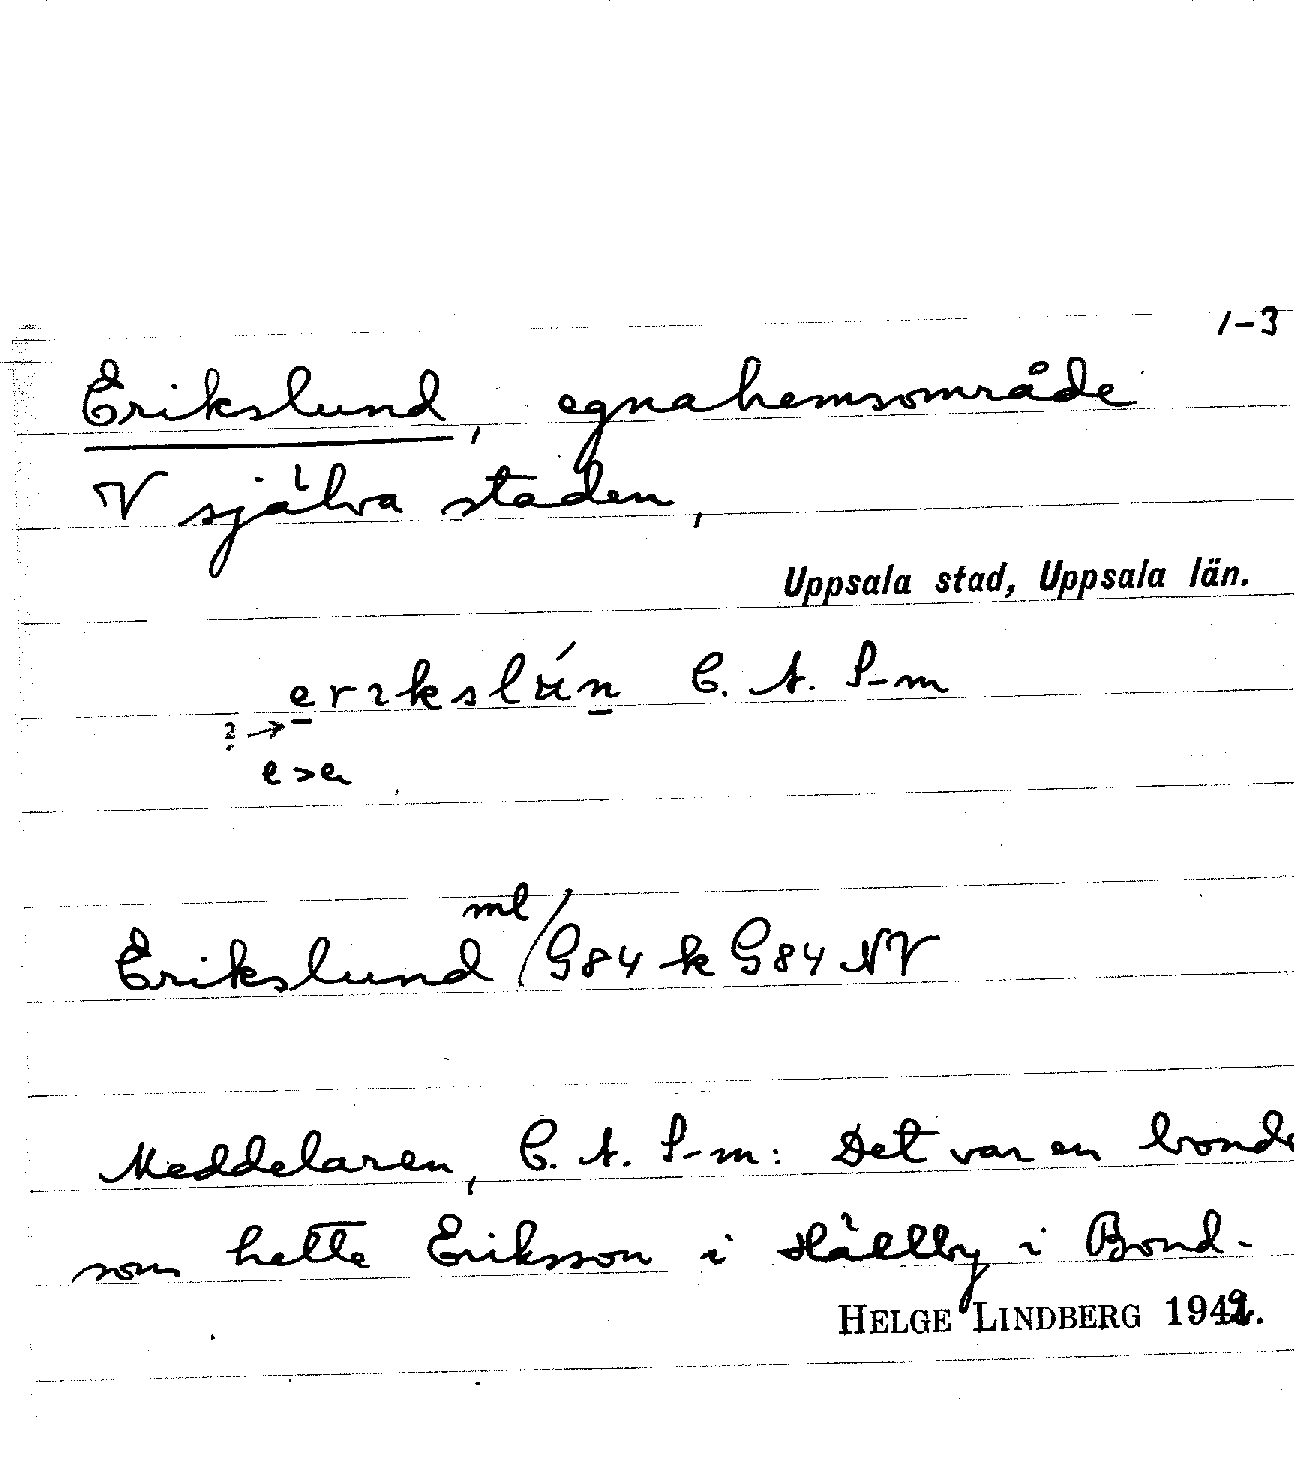 1-3
Erikslund, egnahemsområde
V själva staden,
Uppsala stad, Uppsala län.
erikslún C. A. S-m
2 →
e > e
Erikslund ml/G84 k G84 NV
Meddelaren, C. A. S-m: Det var en bonde
som hette Eriksson i Hällby i Bond-
HELGE LINDBERG 1942.